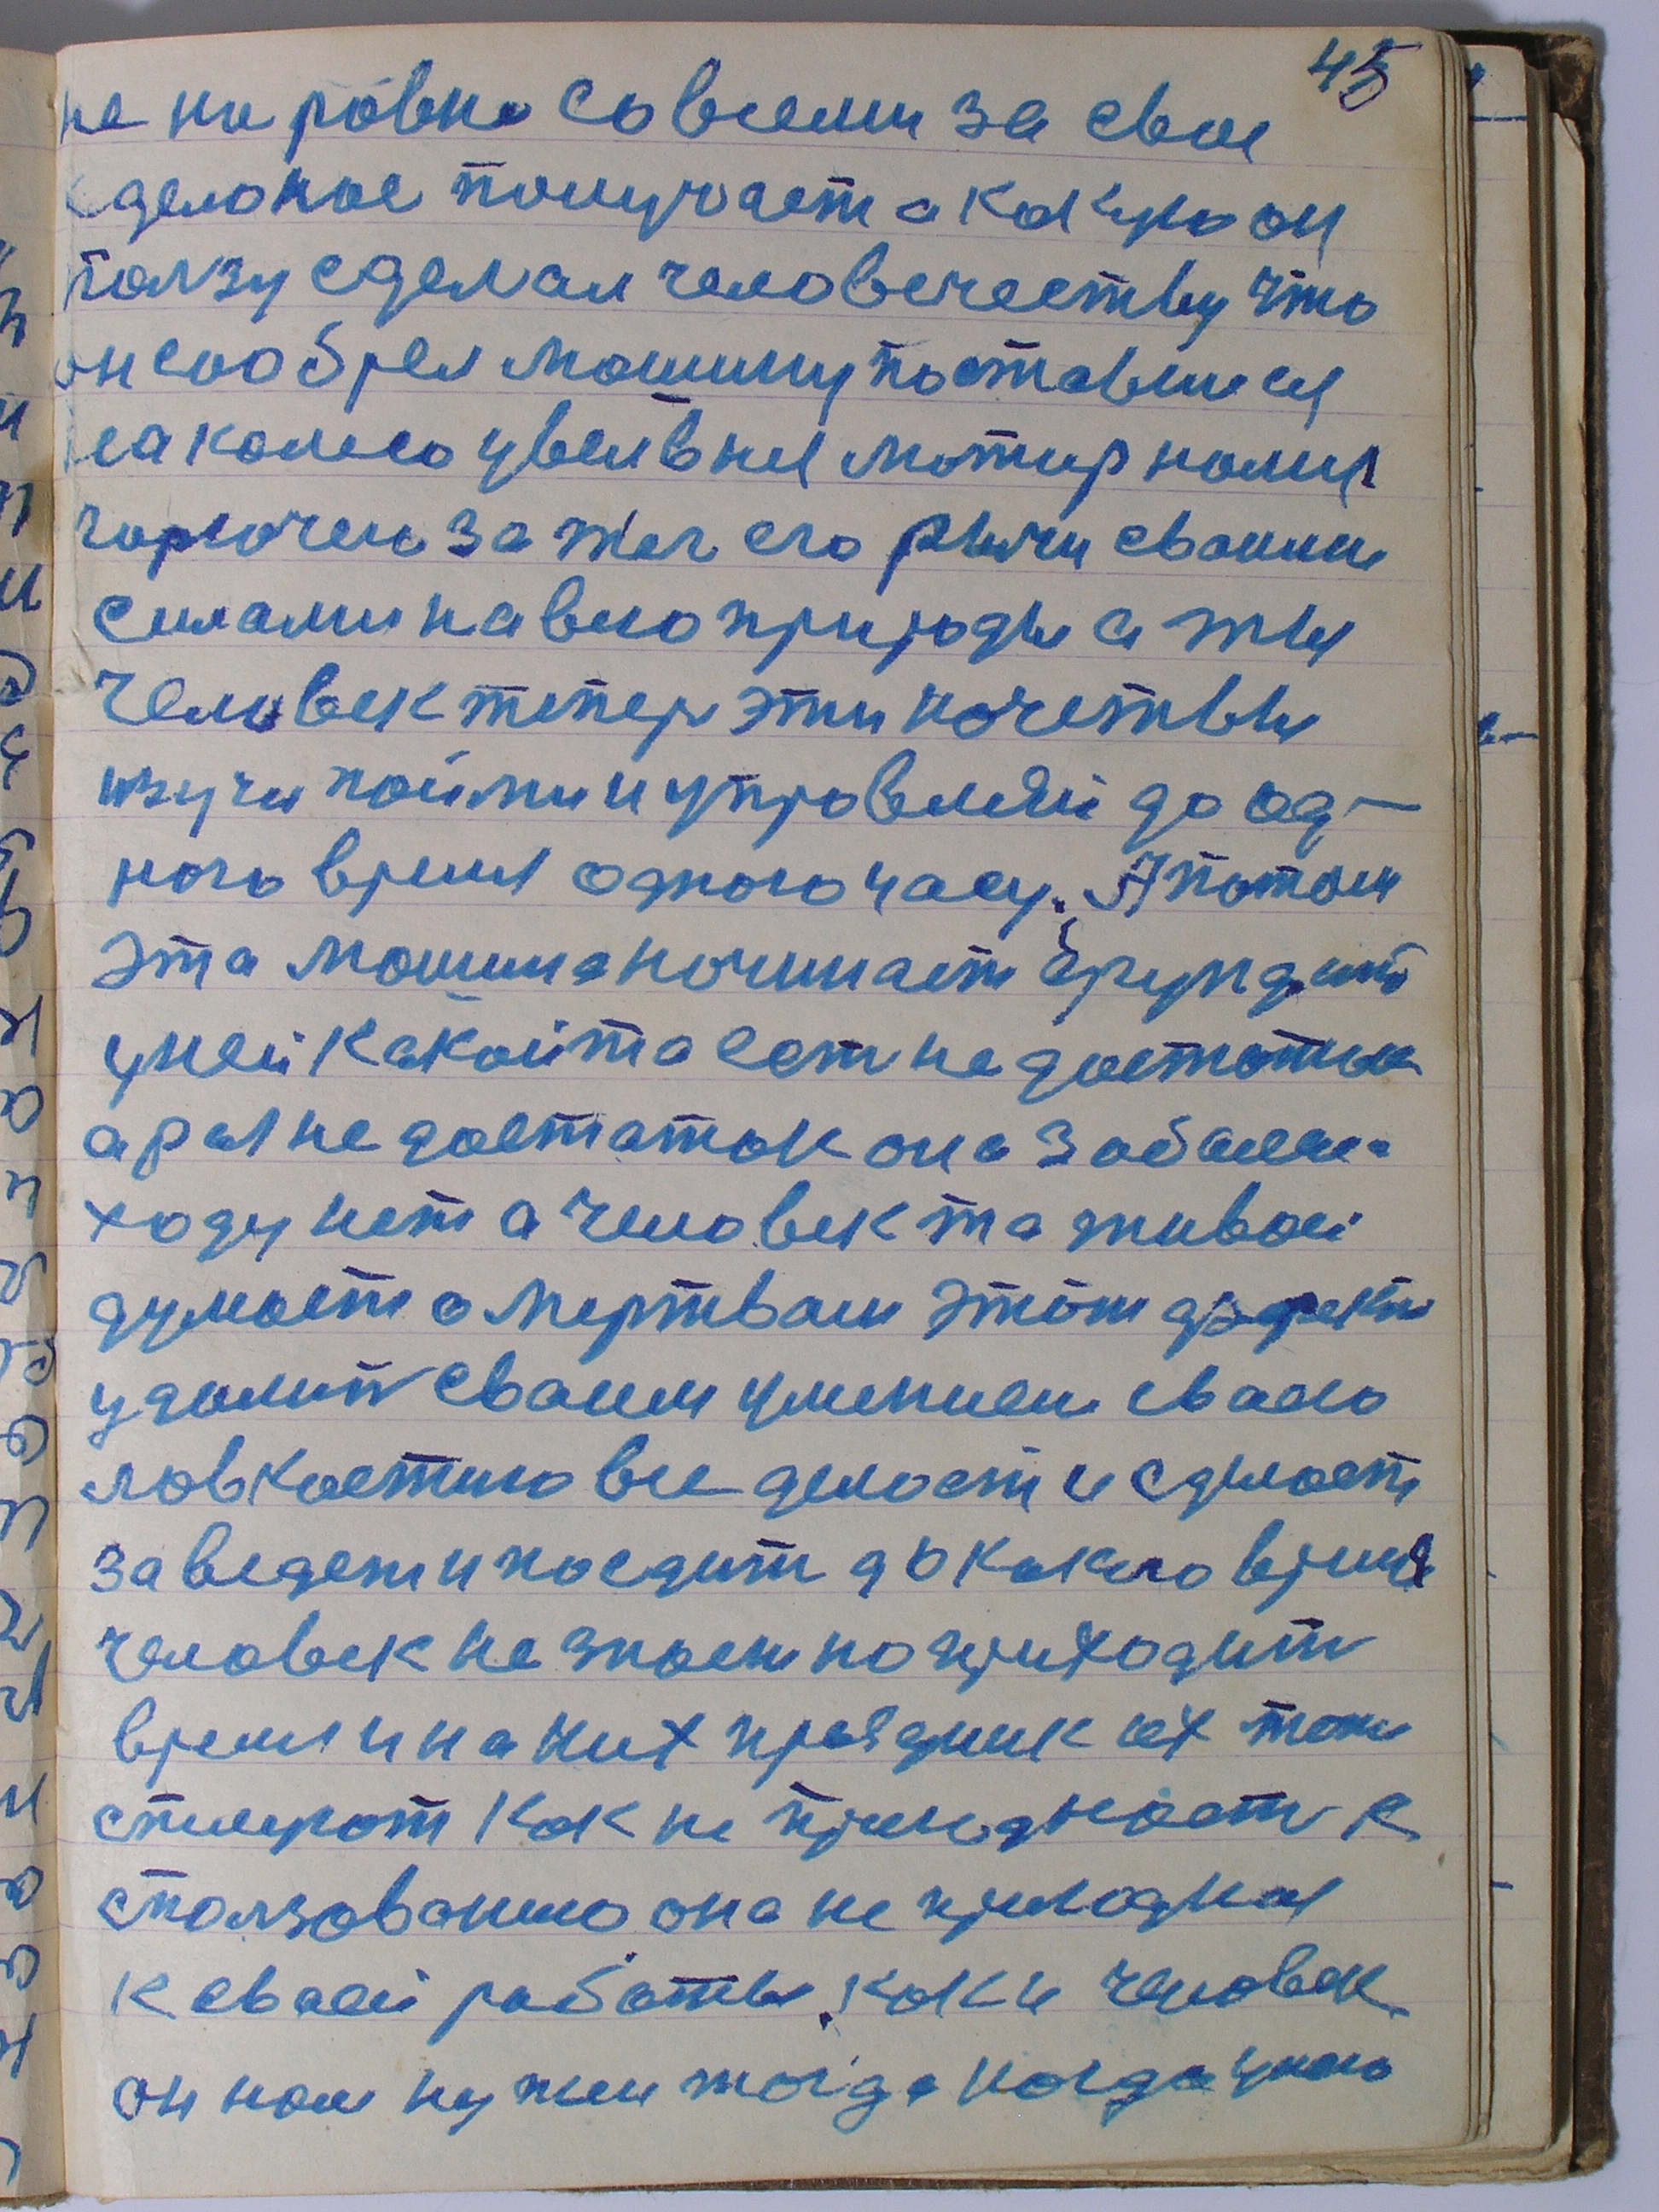 45
не на ровне со всеми за свое
сделоное получает а какую он
ползу сделал человечеству что
он сообрел мошину поставил ея
на колесо увел в нея мотир налил
горючею зажег его рычи своими
силами на всю природы а ты
человек тепер эти кочетвы
изучи пойми и упровляй до од-
ного время одного часу. А потом
эта мошина ночинает брундит
у ней какойта ест не достоток
а раз не достаток она заболела
ходу нет а человек та живой
думоет о мертвом этот дефект
удолит своем умением сваею
ловкостию все делоет и сделоет
заведет и поедит до какого время
человек не знает но приходит
время и на них праздник их тоже
спишут как не пригодност к
сползованию она не пригодная
к своей работы. как и человек
он нам нужен тогда когда у него